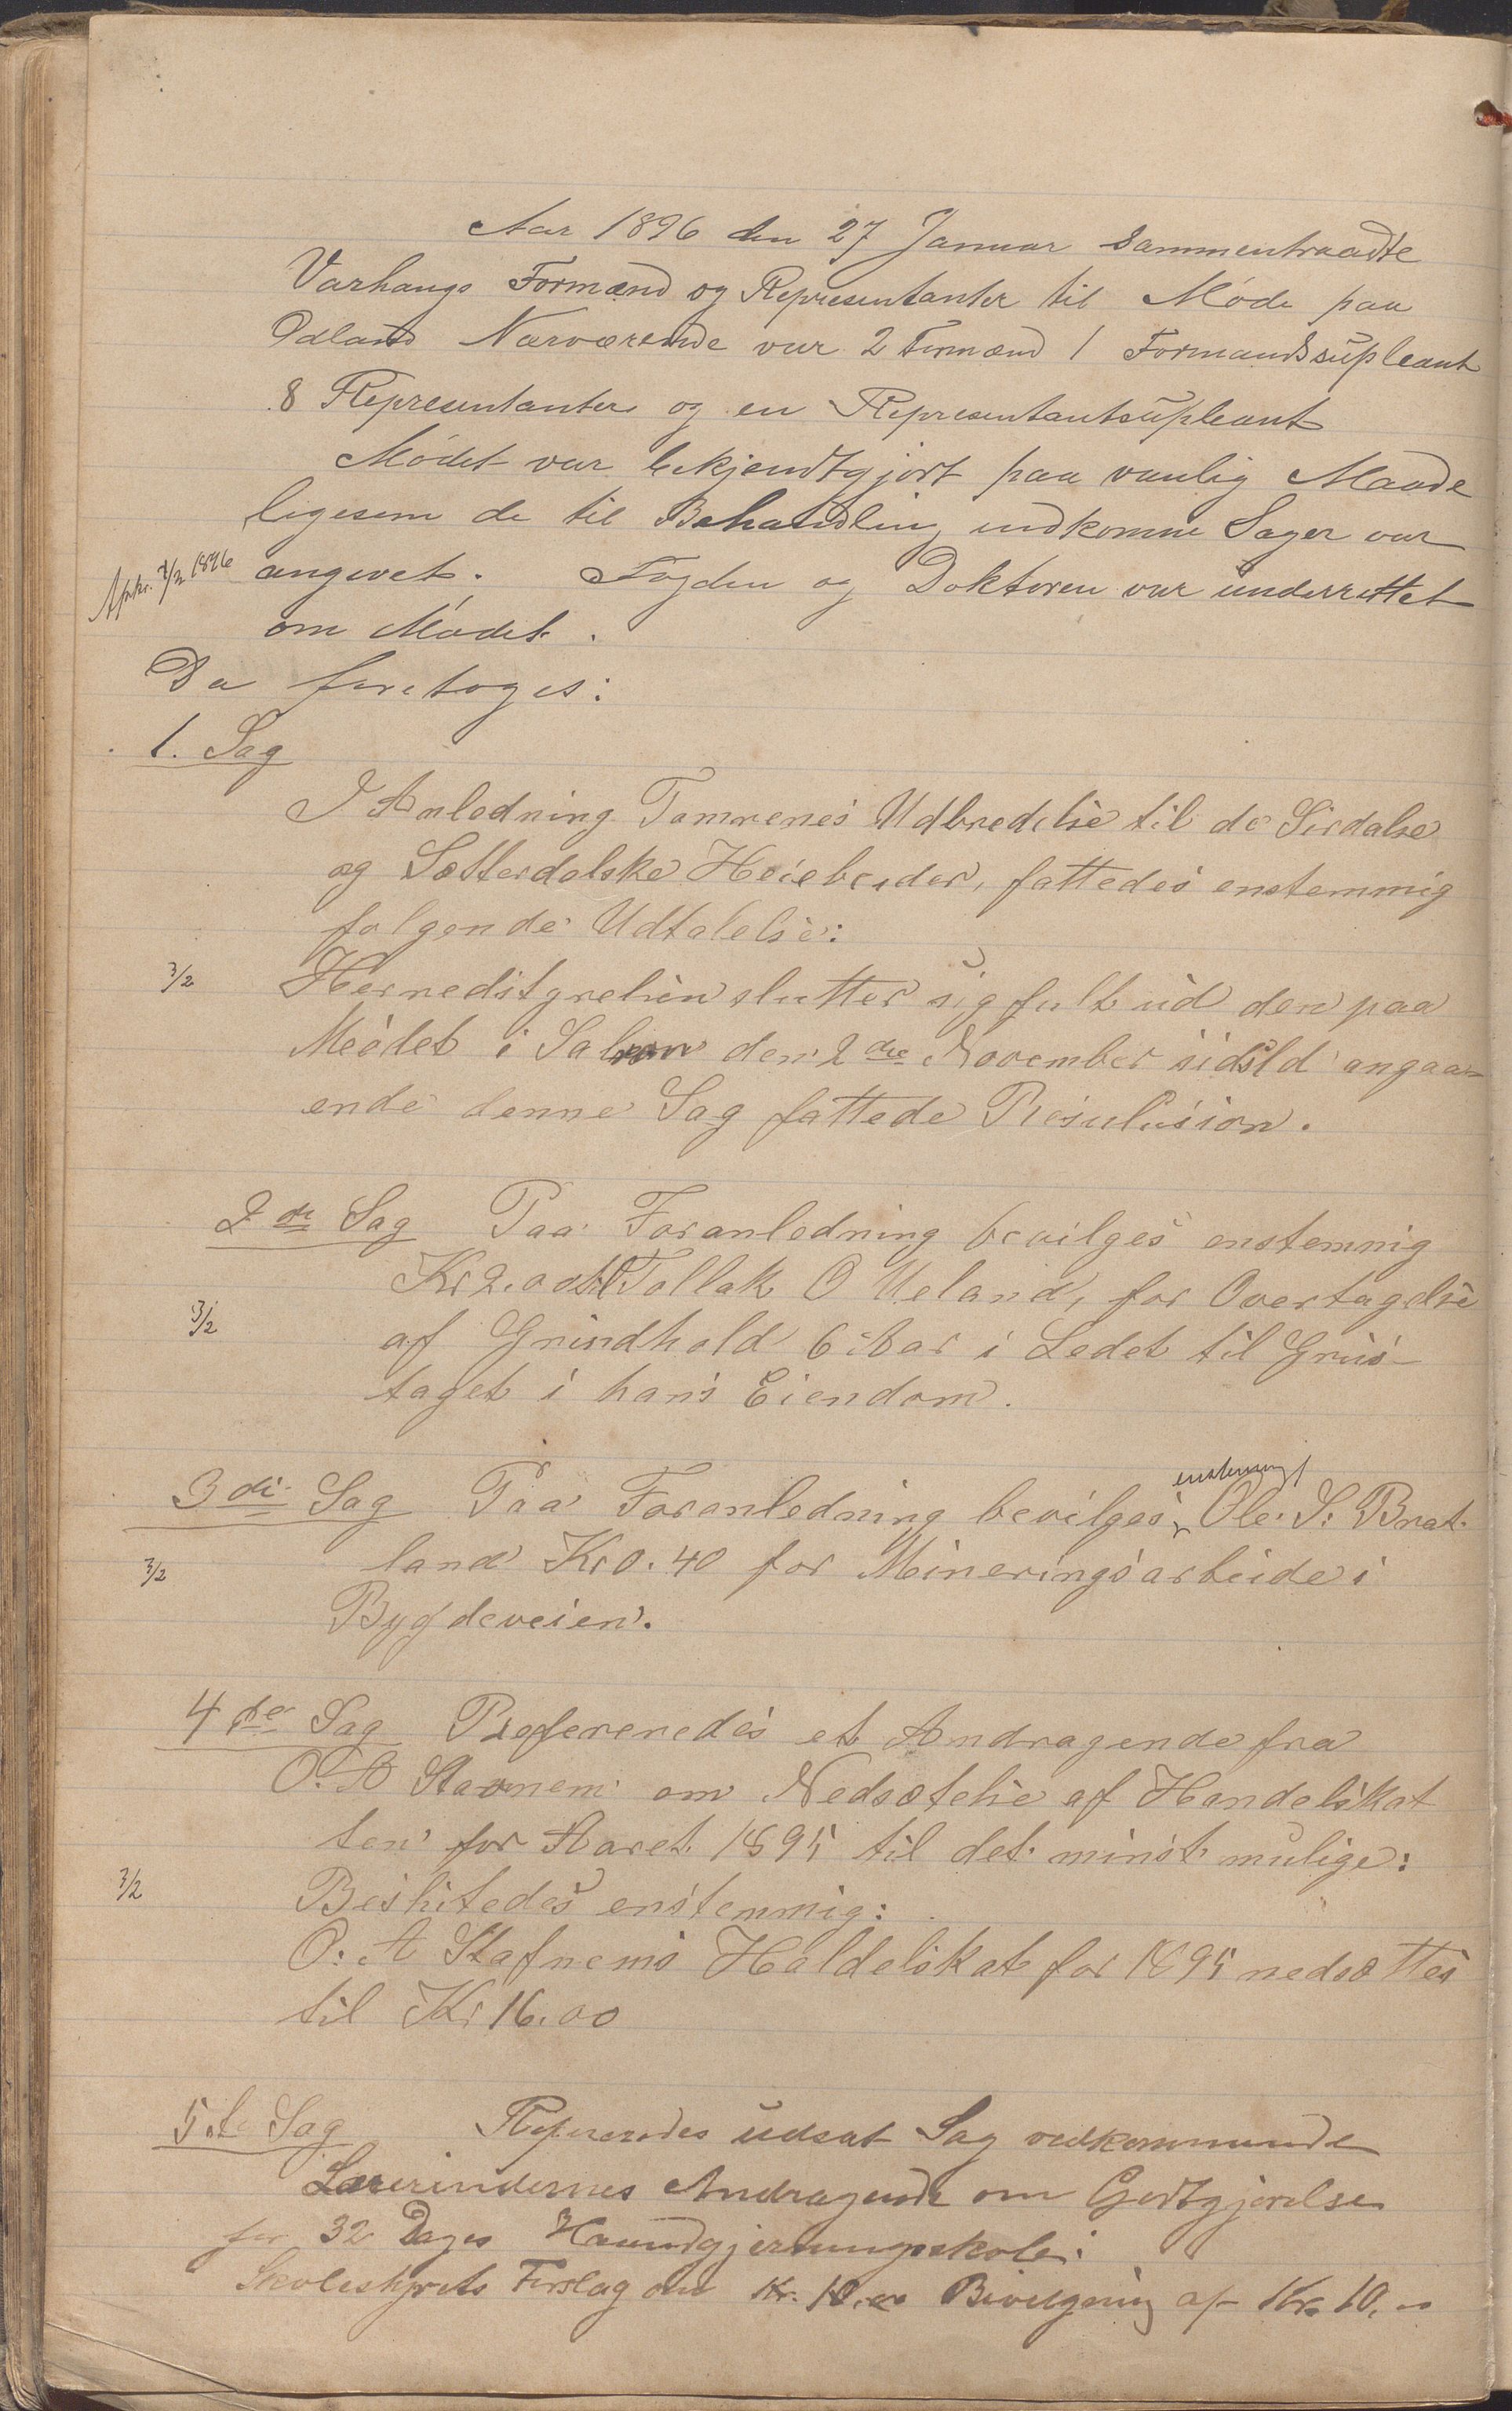 Aar 1896 den 27 Januar Sammentraadte
Varhaugs Formænd og Representanter til Møde paa
Odland Nærværende var 2 Formænd 1 Formandssupleant
8 Representanter og en Representantsupleant
Mødet var bekjendtgjort paa vanlig Maade
ligesom de til Behandling indkomne Sager var
Afskr. 3/2 1896 angivet. Fogden og Doktoren var underrettet
om Mødet.
Da foretoges:
1. Sag
I Anledning Tamrenes Udbredelse til de Sirdalse
og Sætterdalske Heiebeider, fattedes enstemmig
følgende Udtalelse:
3/2 Herredstyrelsen slutter sig fult ud den paa
Mødet i Salmen den 2den November sidstl angaa-
ende denne Sag fattede Resulusion.
2de Sag Paa Foranledning bevilges enstemmig
Kr 2.00 til Tollak O Ueland, for Overtagelse
3/2
af Grindhold 6 Aar i Ledet til Grus-
taget i hans Eiendom.
enstemmig
3di Sag Paa Foranledning bevilges Ole. S. Brat-
3/2 land Kr 0.40 for Mineringsarbeide i
Bygdeveien.
4de Sag Refereredes et Andragende fra
O. A Stavnem om Nedsættelse af Handelskat
ten for Aaret 1895 til det minst mulige:
3/2 Besluttedes enstemmig:
O. A Stafnems Haldelskat for 1895 nedsættes
til Kr 16.00
5te Sag Refereredes udsat Sag vedkommende
Lærerindernes Andragende om Godtgjørelse
for 32 Dages Haandgjerningsskole.
Skolestyrets Forslag om Kr. 10.00 Bevilgning af Kr. 10.00